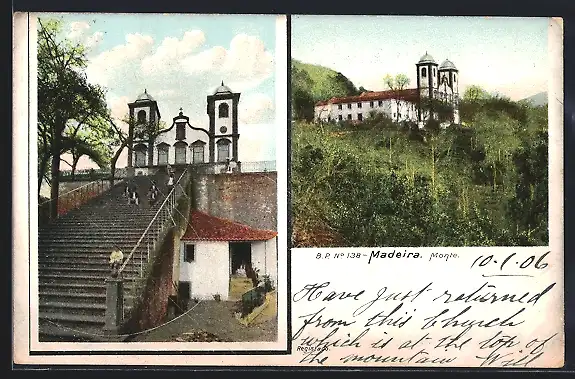 B.P. Nº 138 - Madeira. Monte.
10-1-06
Have just returned
from this church
which is at the top of
the mountain Will
Registado.